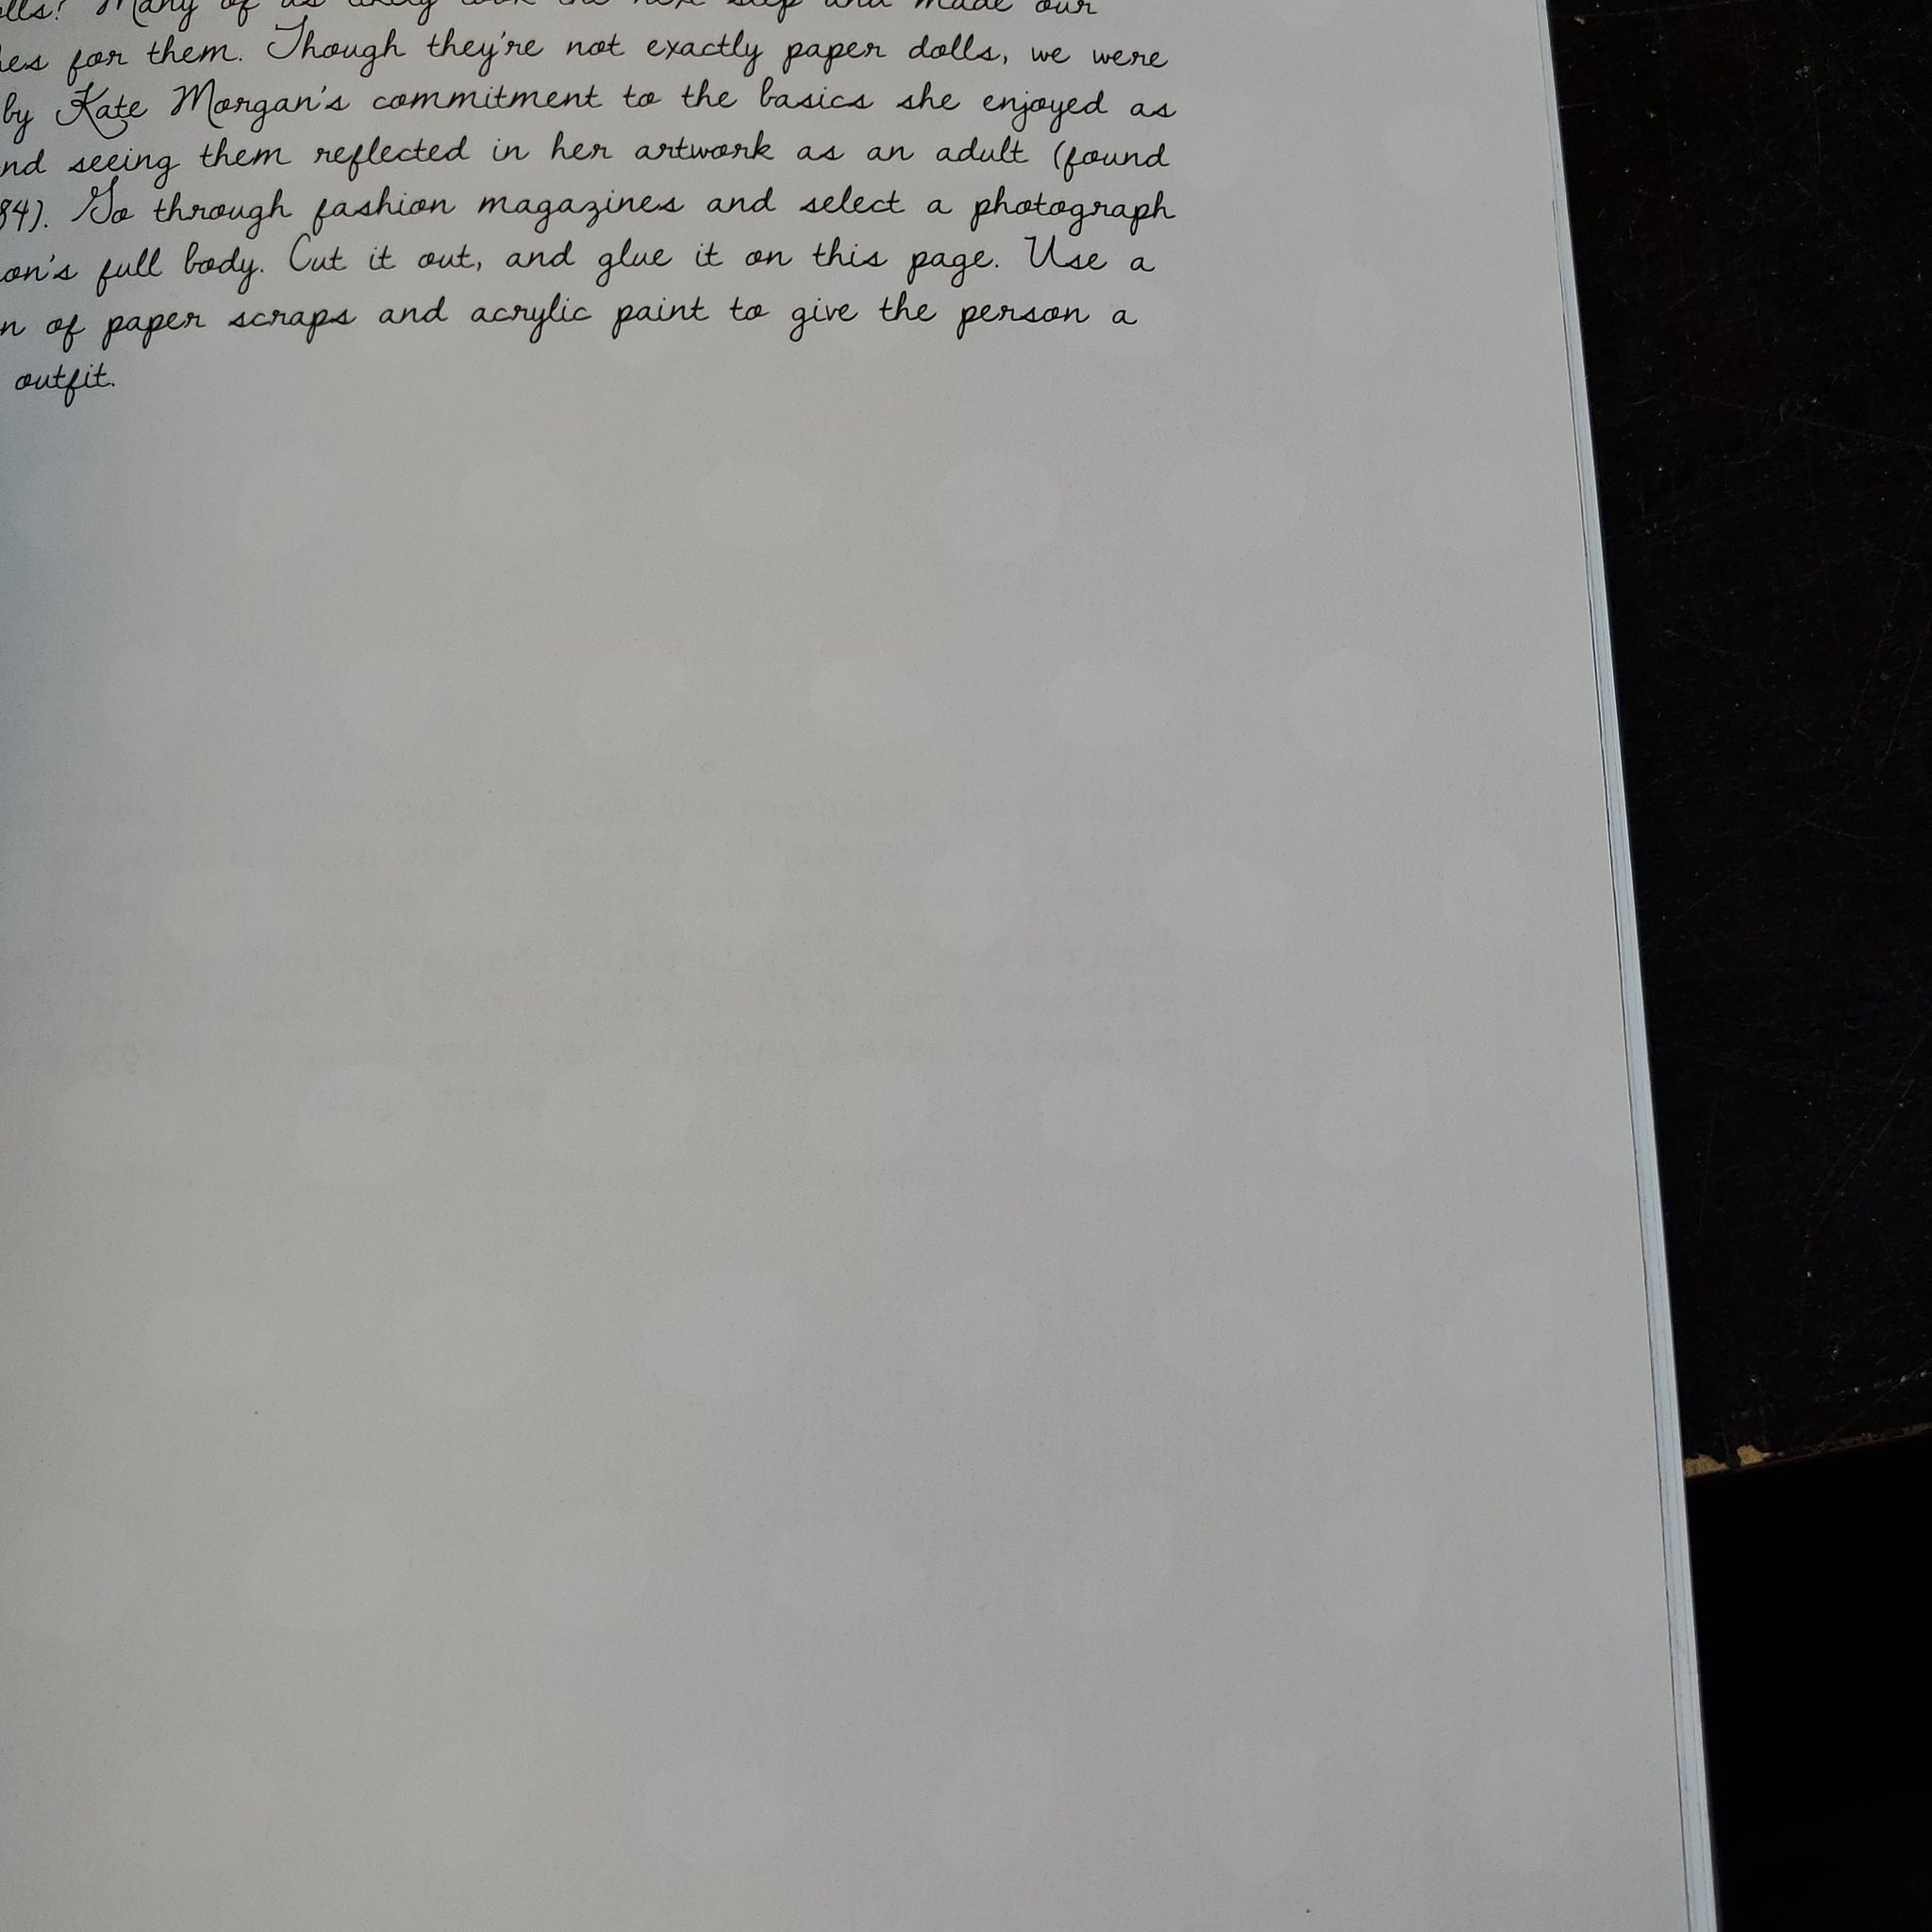 olls? Many of us likely took the next step and made our
hes for them. Though they're not exactly paper dolls, we were
by Kate Morgan's commitment to the basics she enjoyed as
nd seeing them reflected in her artwork as an adult (found
84). Go through fashion magazines and select a photograph
on's full body. Cut it out, and glue it on this page. Use a
n of paper scraps and acrylic paint to give the person a
outfit.